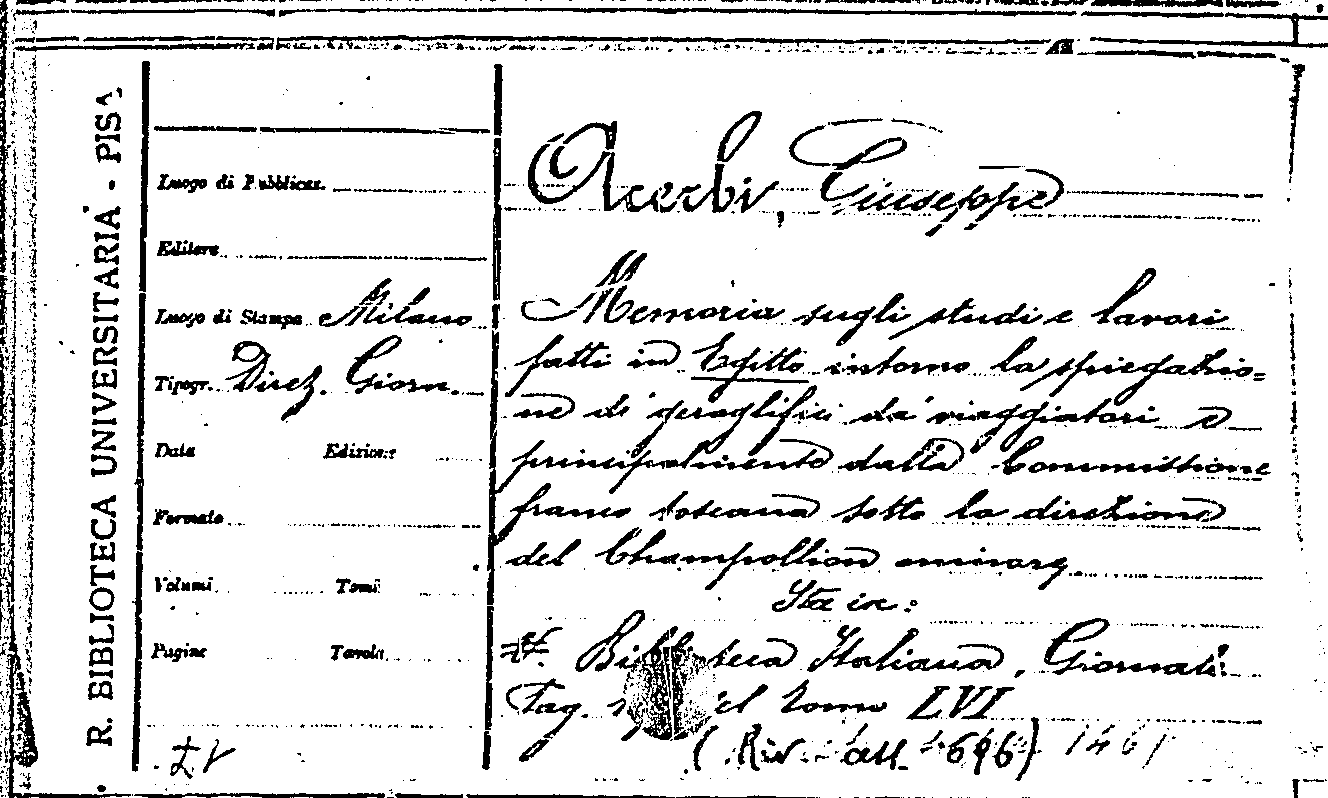 R. BIBLIOTECA UNIVERSITARIA - PISA
Luogo di Pubblicaz.
Editore
Luogo di Stampa Milano
Tipogr. Direz. Giorn.
Data Edizione
Formato
Volumi Tomi
Pagine Tavole
Acerbi, Giuseppe
Memoria sugli studi e lavori
fatti in Egitto intorno la spiegazio=
ne di geroglifici da' viaggiatori e
principalmente dalla Commissione
franco toscana sotto la direzione
del Champollion minore
Sta in:
Biblioteca Italiana, Giornale
Pag. del Tomo LVI
(Riv. 4696) 1461